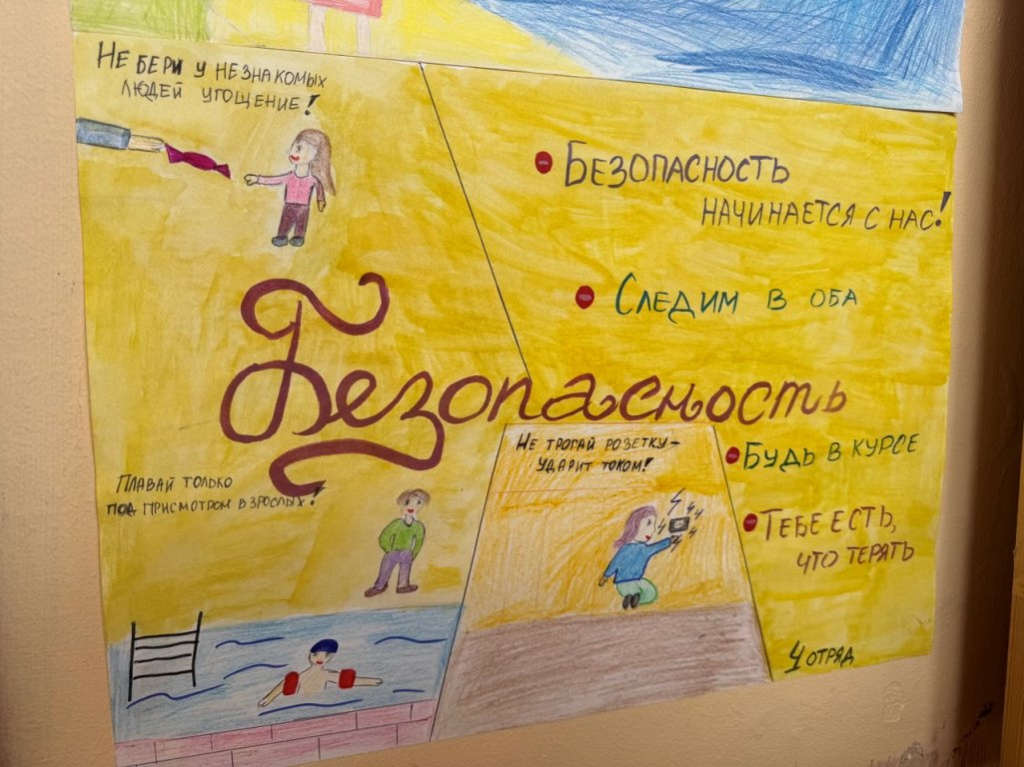 Не бери у незнакомых
людей угощение!
Безопасность
начинается с нас!
Следим в оба
Безопасность
Не трогай розетку–
ударит током!
Будь в курсе
Плавай только
под присмотром взрослых!
Тебе есть,
что терять
4 отряд